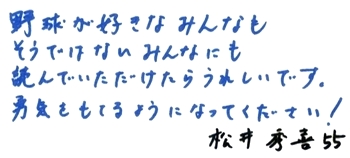 野球が好きなみんなも
そうではないみんなにも
読んでいただけたらうれしいです。
勇気をもてるようになってください！
松井秀喜 55